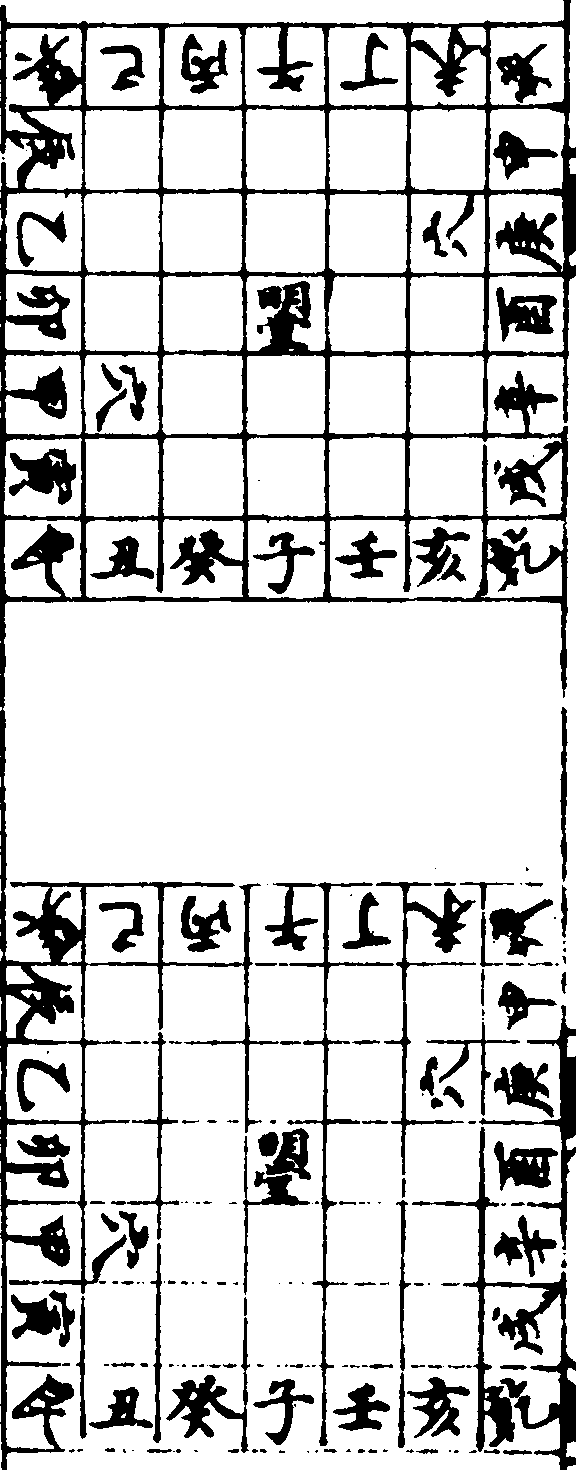 巽 巳 丙 午 丁 未 坤
辰 申
乙 穴 庚
卯 明堂 酉
甲 穴 辛
寅 戌
艮 丑 癸 子 壬 亥 乾
巽 巳 丙 午 丁 未 坤
辰 申
乙 穴 庚
卯 明堂 酉
甲 穴 辛
寅 戌
艮 丑 癸 子 壬 亥 乾